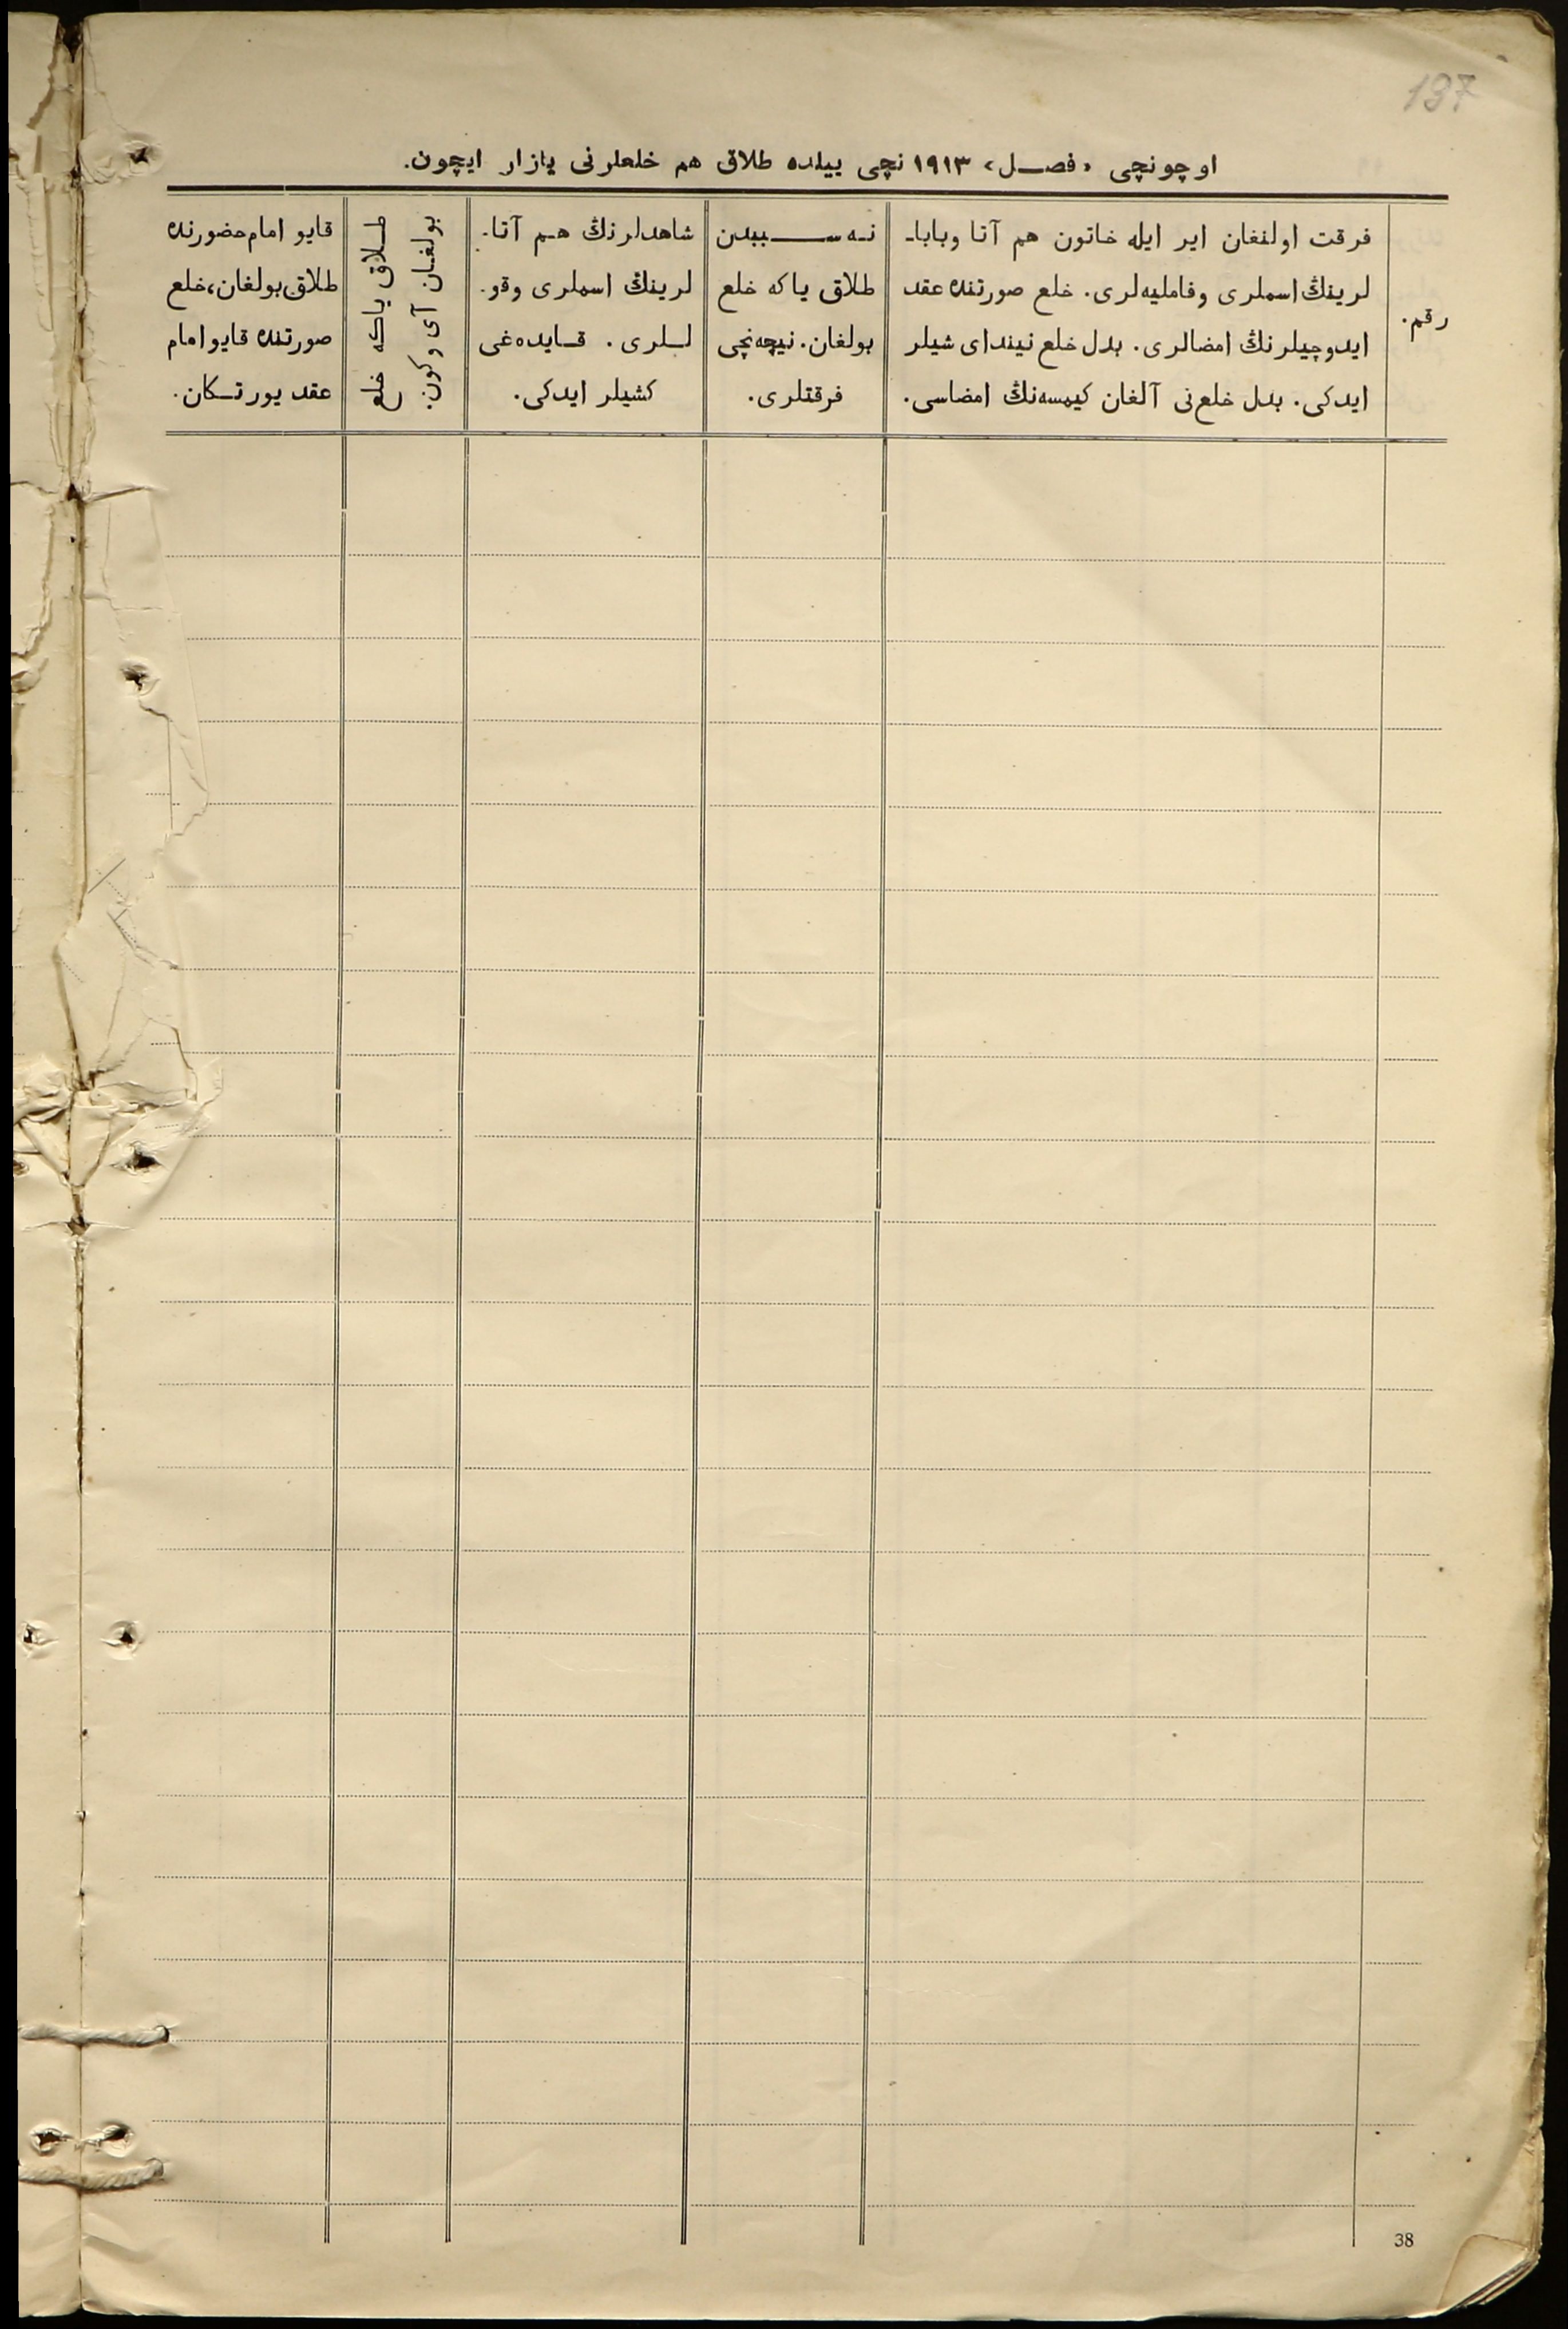 137
اوچونچی «فصل» ١٩١٣ نچی ییلده طلاق هم خلعلرنی یازار ایچون.
رقم.
فرقت اولنغان ایر ایله خاتون هم آتا وبابا-
لرینڭ اسملری وفاملیه‌لری. خلع صورتنده عقد
ایدوچیلرنڭ امضالری. بدل خلع نیندای شیلر
ایدکی. بدل خلع‌نی آلغان کیمسه‌نڭ امضاسی.
نه سببدن
طلاق یا که خلع
بولغان. نیچه‌نچی
فرقتلری.
شاهدلرنڭ هم آتا-
لرینڭ اسملری وقو-
للری. قایده‌غی
کشیلر ایدکی.
طلاق یاکه خلع
بولغان آی وکون.
قایو امام حضورنده
طلاق بولغان، خلع
صورتنده قایو امام
عقد یورتکان.
38